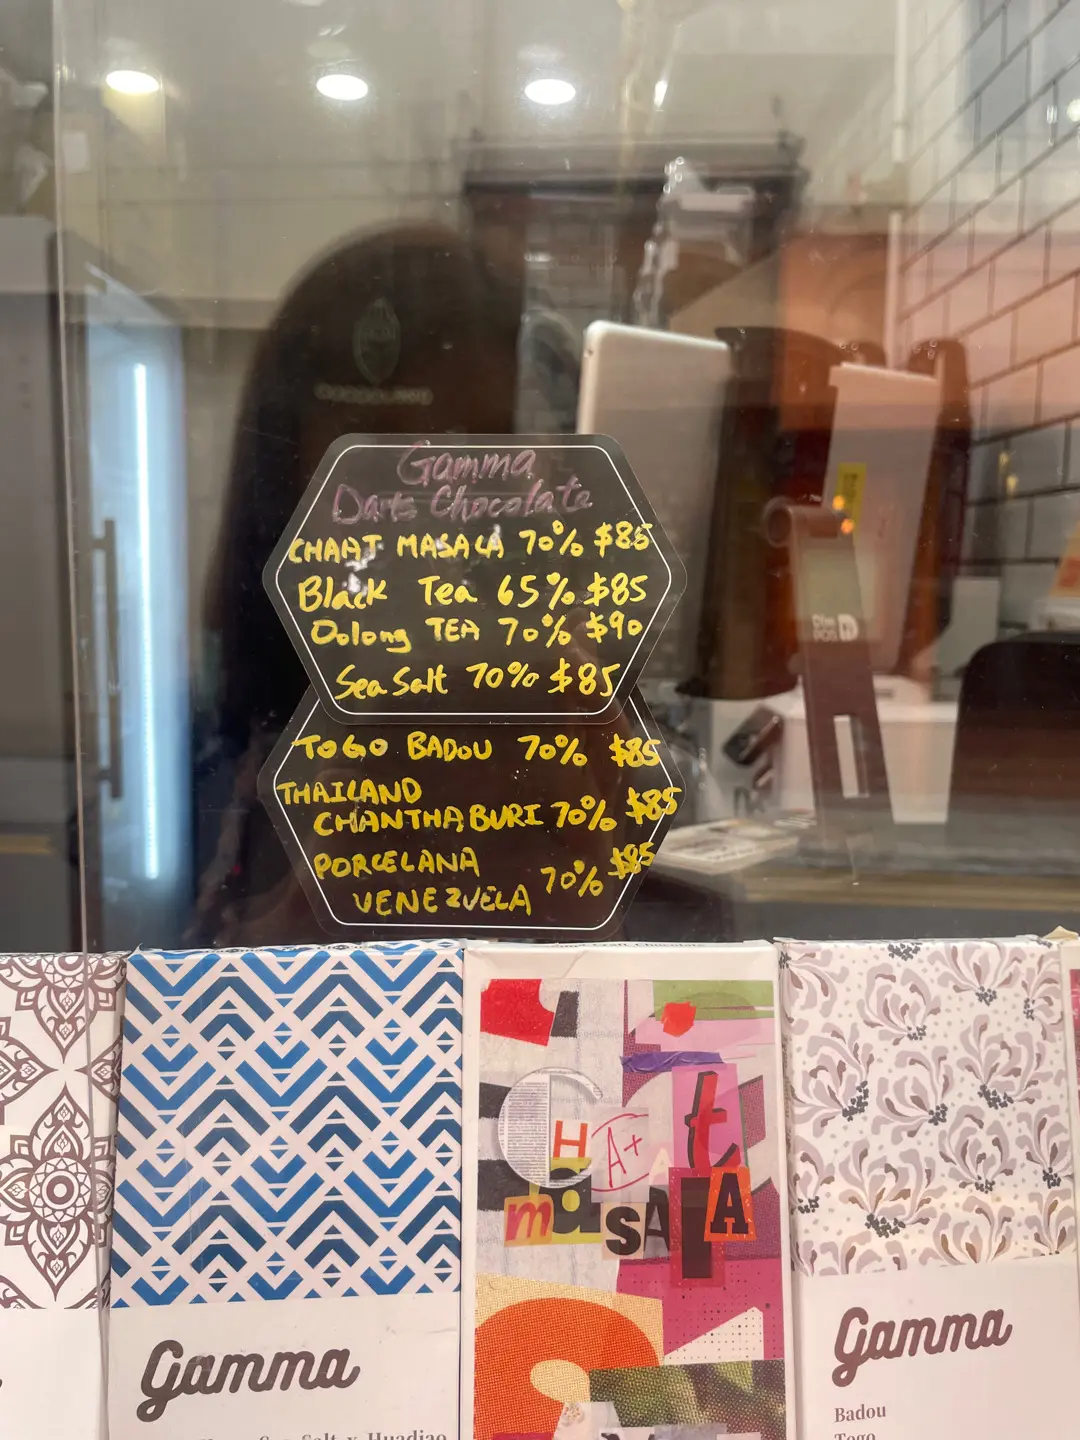 Gamma
Dark Chocolate
CHAAT MASALA 70% $85
Black Tea 65% $85
Oolong TEA 70% $90
Sea Salt 70% $85
TOGO BADOU 70% $85
THAILAND
CHANTHABURI 70% $85
PORCELANA $85
VENEZUELA 70%
CHAAt
masALA
A+
Gamma
Sea Salt x Huadiao
Gamma
Badou
Togo